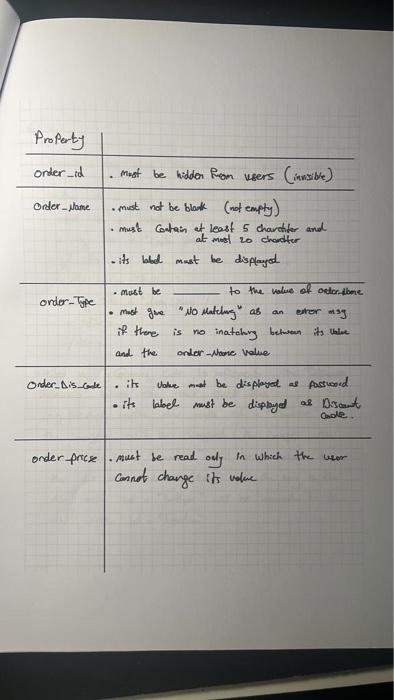 Property
order_id . must be hidden from users (invisible)
Order_Name . must not be blank (not empty)
. must Contain at least 5 charchter and
at most 20 charchter
. its label must be displayed
order_Type . must be ______ to the value of order_Name
. must give "NO Matching" as an error msg
if there is no matching between its value
and the order_Name value
Order_Dis_Code . its value must be displayed as password
. its label must be displayed as Discount
Code.
order_price . must be read only in which the user
Cannot change its value